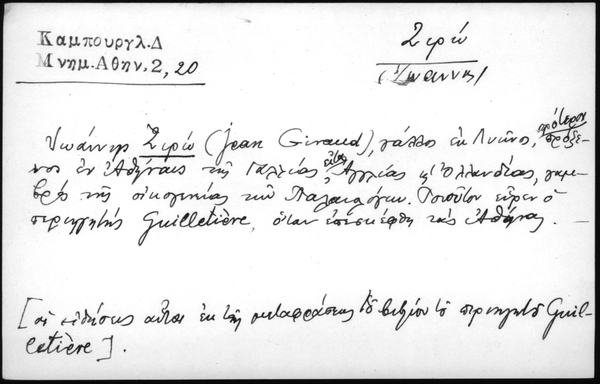 Καμπουργλ.Δ
Μνημ.Αθην.2,20
Ζιρώ
(Ἰωάννης)
Ἰωάννης Ζιρώ (Jean Giraud), γάλλος ἐκ Λυῶνος, πρότερον πρόξε-
νος ἐν Ἀθήναις τῆς Γαλλίας, εἶτα Ἀγγλίας κ' Ὁλλανδίας, γαμ-
βρός τῆς οἰκογενείας τῶν Παλαιολόγων. Τοιοῦτον εὗρεν ὁ
περιηγητής Guilletière, ὅταν ἐπεσκέφθη τάς Ἀθήνας.
[αἱ εἰδήσεις αὗται ἐκ τῆς μεταφράσεως τοῦ βιβλίου τοῦ περιηγητοῦ Guil-
letière].